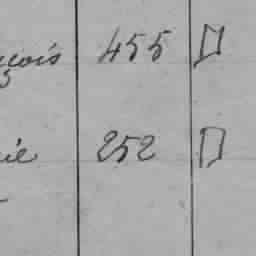 çois 455
cie 252